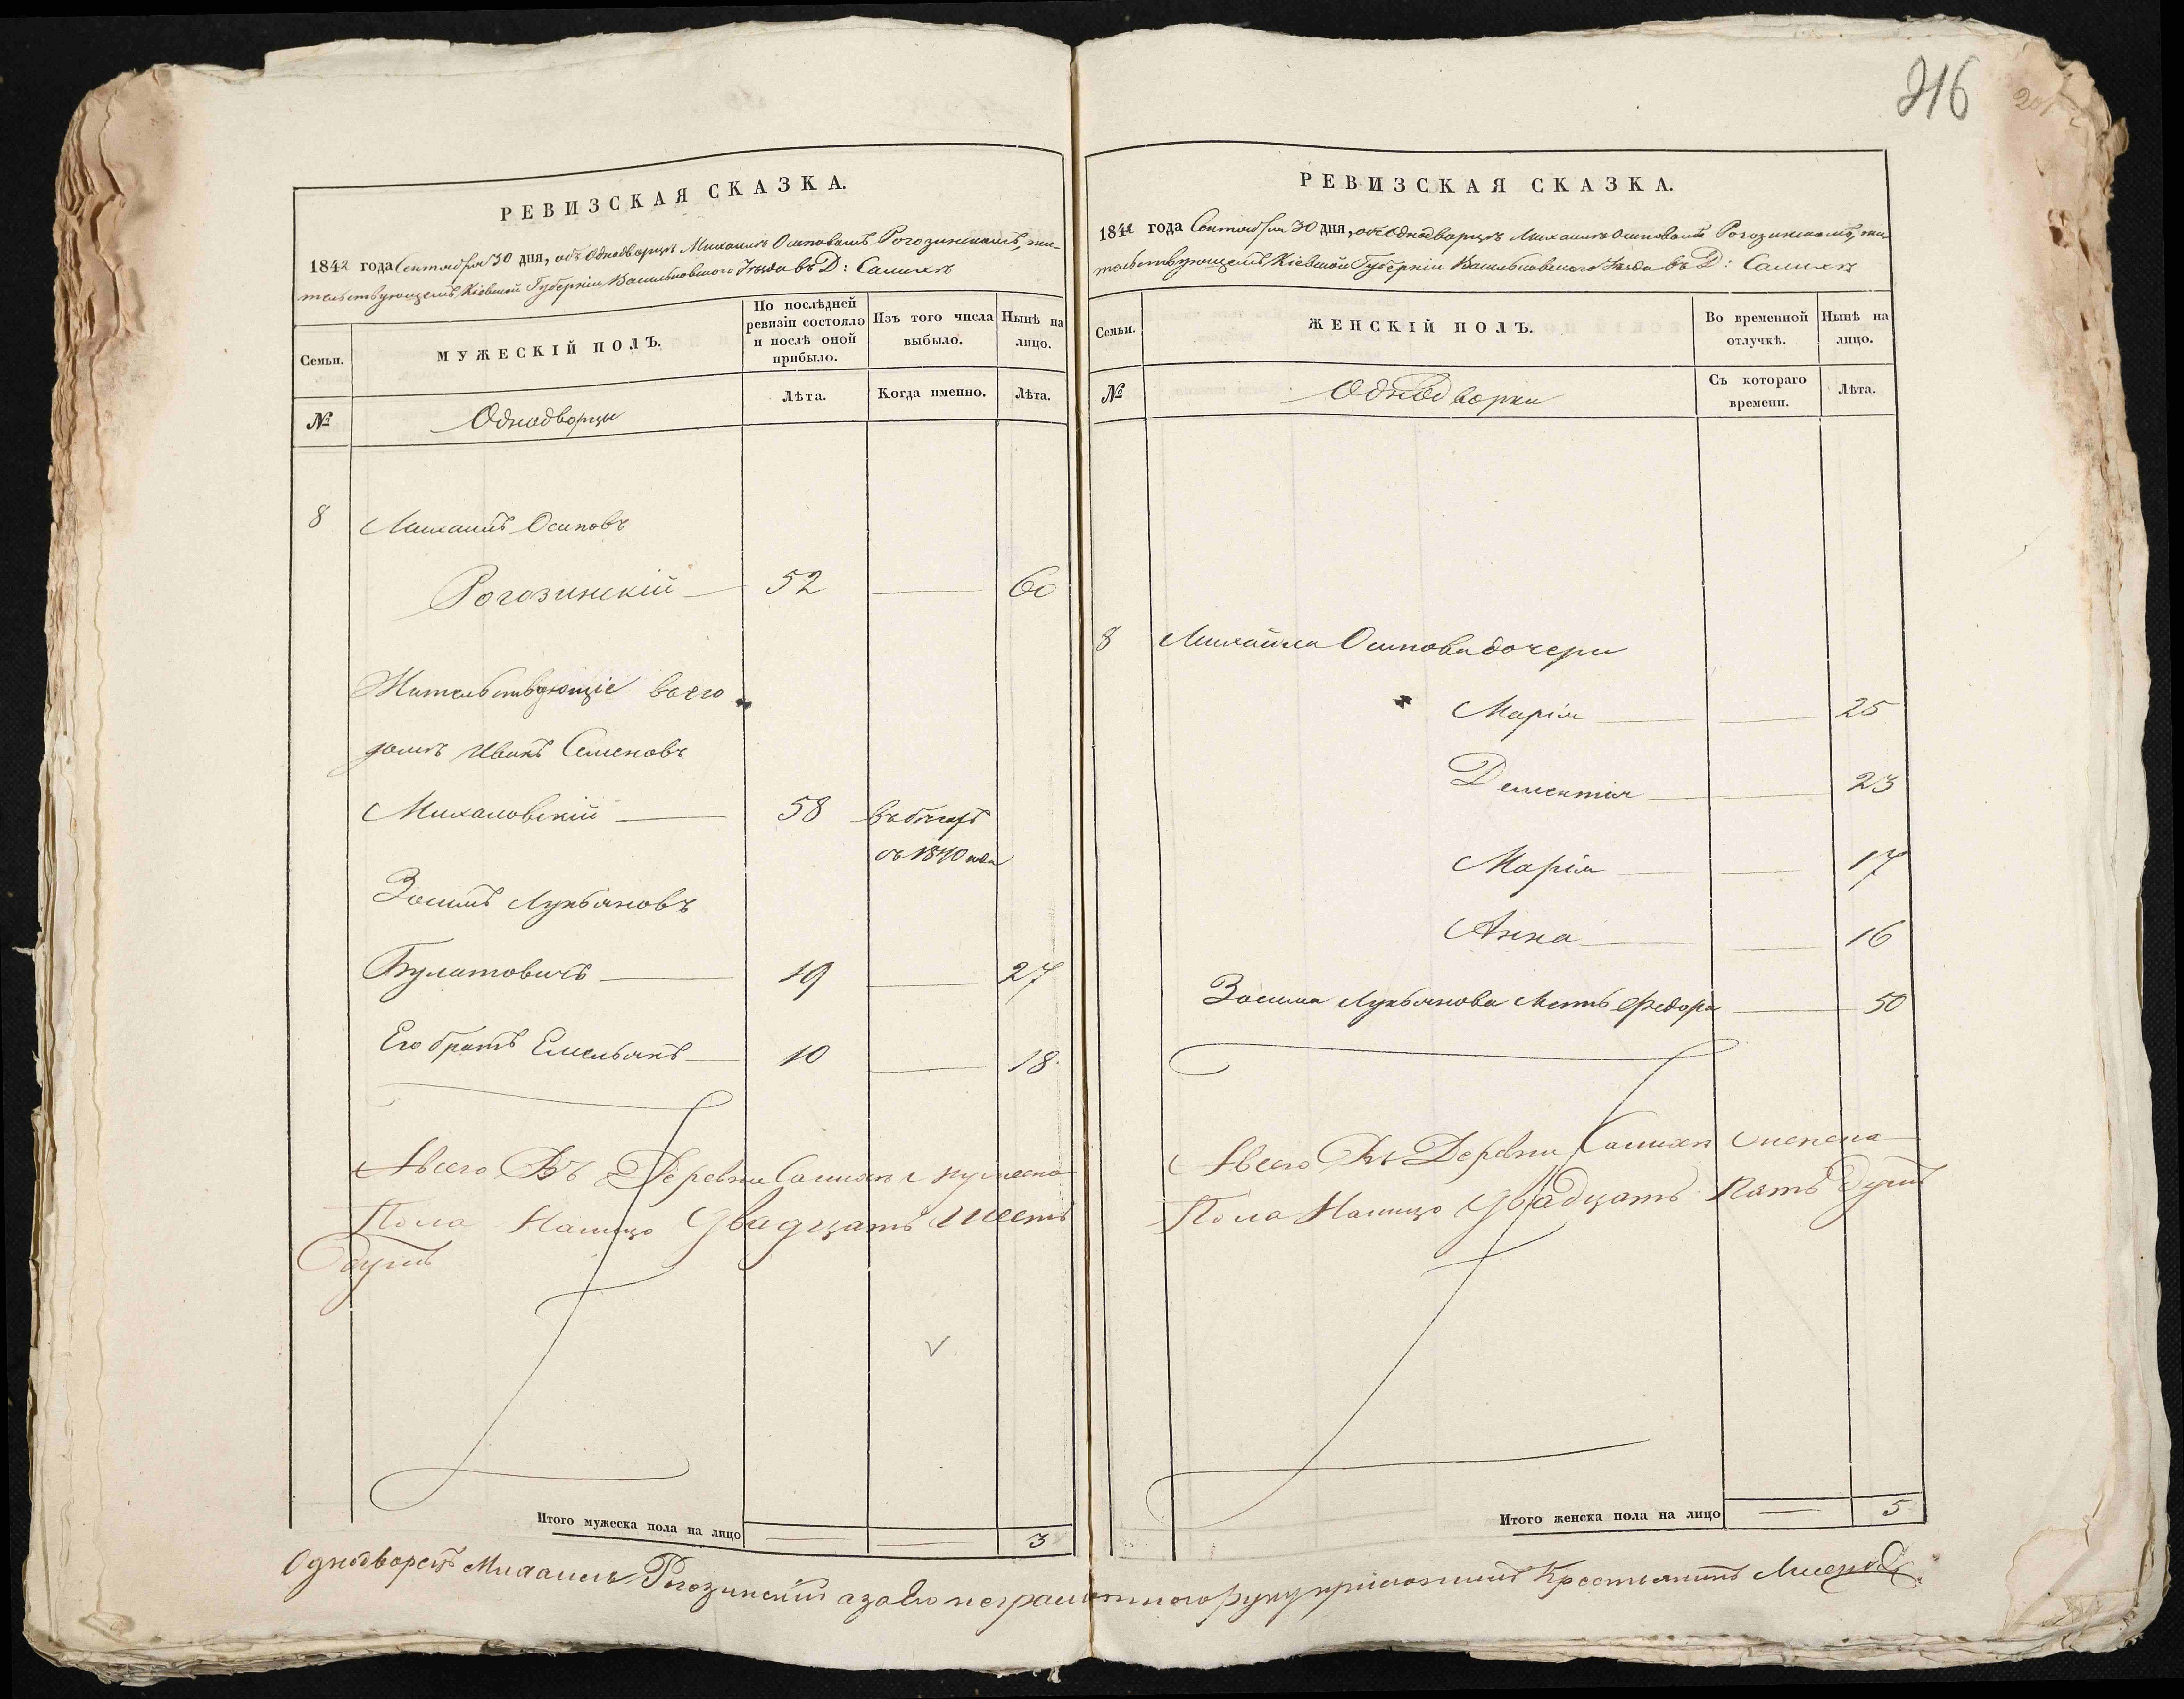 216
РЕВИЗСКАЯ СКАЗКА.
1842 года Сентября 30 дня, объ Однодворцѣ Михаилѣ Осиповомъ Рогозинскомъ, жи-
тельствующемъ Кіевской Губерніи Васильковского Уѣзда въ Д:
Семьи.
МУЖЕСКІЙ ПОЛЪ.
По послѣдней
ревизіи состояло
и послѣ оной
прибыло.
Изъ того числа
выбыло.
Нынѣ на
лицо.
№
Однодворцы
Лѣта.
Когда именно.
Лѣта.
8 Михаилъ Осиповъ
Рогозинскій 52 60
Жительствующіе въ его
домѣ Иванъ Семеновъ
Михаловскій 58 въ бѣгахъ
съ 1840 года
Зосимъ Лукьяновъ
Булатовичъ 19 27
Его братъ Емельянъ 10 18
Авсего Въ Деревни мужеска
Пола Налицо Двадцать Шесть
Душъ
Итого мужеска пола на лицо 3
РЕВИЗСКАЯ СКАЗКА.
1842 года Сентября 30 дня, объ Однодворцѣ Михаилѣ Осиповомъ Рогозинскомъ, жи-
тельствующемъ Кіевской Губерніи Васильковского Уѣзда въ Д:
Семьи.
ЖЕНСКІЙ ПОЛЪ.
Во временной
отлучкѣ.
Нынѣ на
лицо.
№
Однодворки
Съ котораго
времени.
Лѣта.
8 Михайла Осипова дочери
Марія 25
Дементія 23
Марія 17
Анна 16
Зосима Лукьянова Мать Федора 50
Авсего Въ Деревни женска
Пола Налицо Двадцать Пять Душъ
Итого женска пола на лицо 5
Однодворецъ Михаилъ Рогозинскій а за его неграмотного руку приложилъ Крестьянинъ